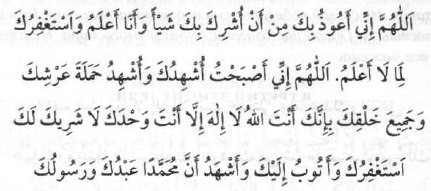 اَللّٰهُمَّ إِنِّي أَعُوذُ بِكَ مِنْ أَنْ أُشْرِكَ بِكَ شَيْأً وَأَنَا أَعْلَمُ وَاَسْتَغْفِرُكَ
لِمَا لَا أَعْلَمُ. اَللّٰهُمَّ إِنِّي أَصْبَحْتُ أُشْهِدُكَ وَأُشْهِدُ حَمَلَةَ عَرْشِكَ
وَجَمِيعَ خَلْقِكَ بِإِنَّكَ أَنْتَ اللهُ لَا إِلٰهَ إِلَّا أَنْتَ وَحْدَكَ لَا شَرِيكَ لَكَ
اَسْتَغْفِرُكَ وَأَتُوبُ إِلَيْكَ وَأَشْهَدُ أَنَّ مُحَمَّدًا عَبْدُكَ وَرَسُولُكَ